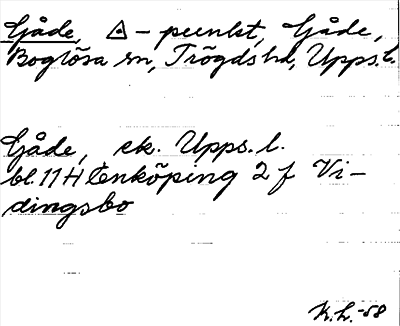 Gåde, △ - punkt, Gåde,
Boglösa sn, Trögds hd, Upps. l.
Gåde, ek. Upps. l.
bl. 11 H Enköping 2 f Vi-
dingsbo
K.L. -58